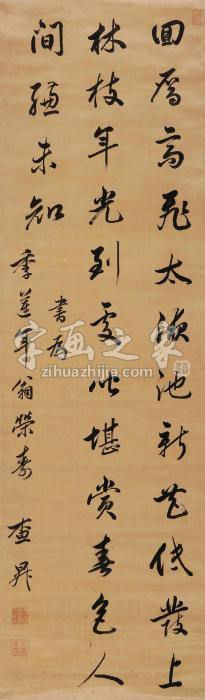 回雁高飛太液池新花低發上
林枝年光到處皆堪賞春色人
間總未知
書爲
季蓮年翁榮壽 查昇
字画之家
zihuazhijia.com